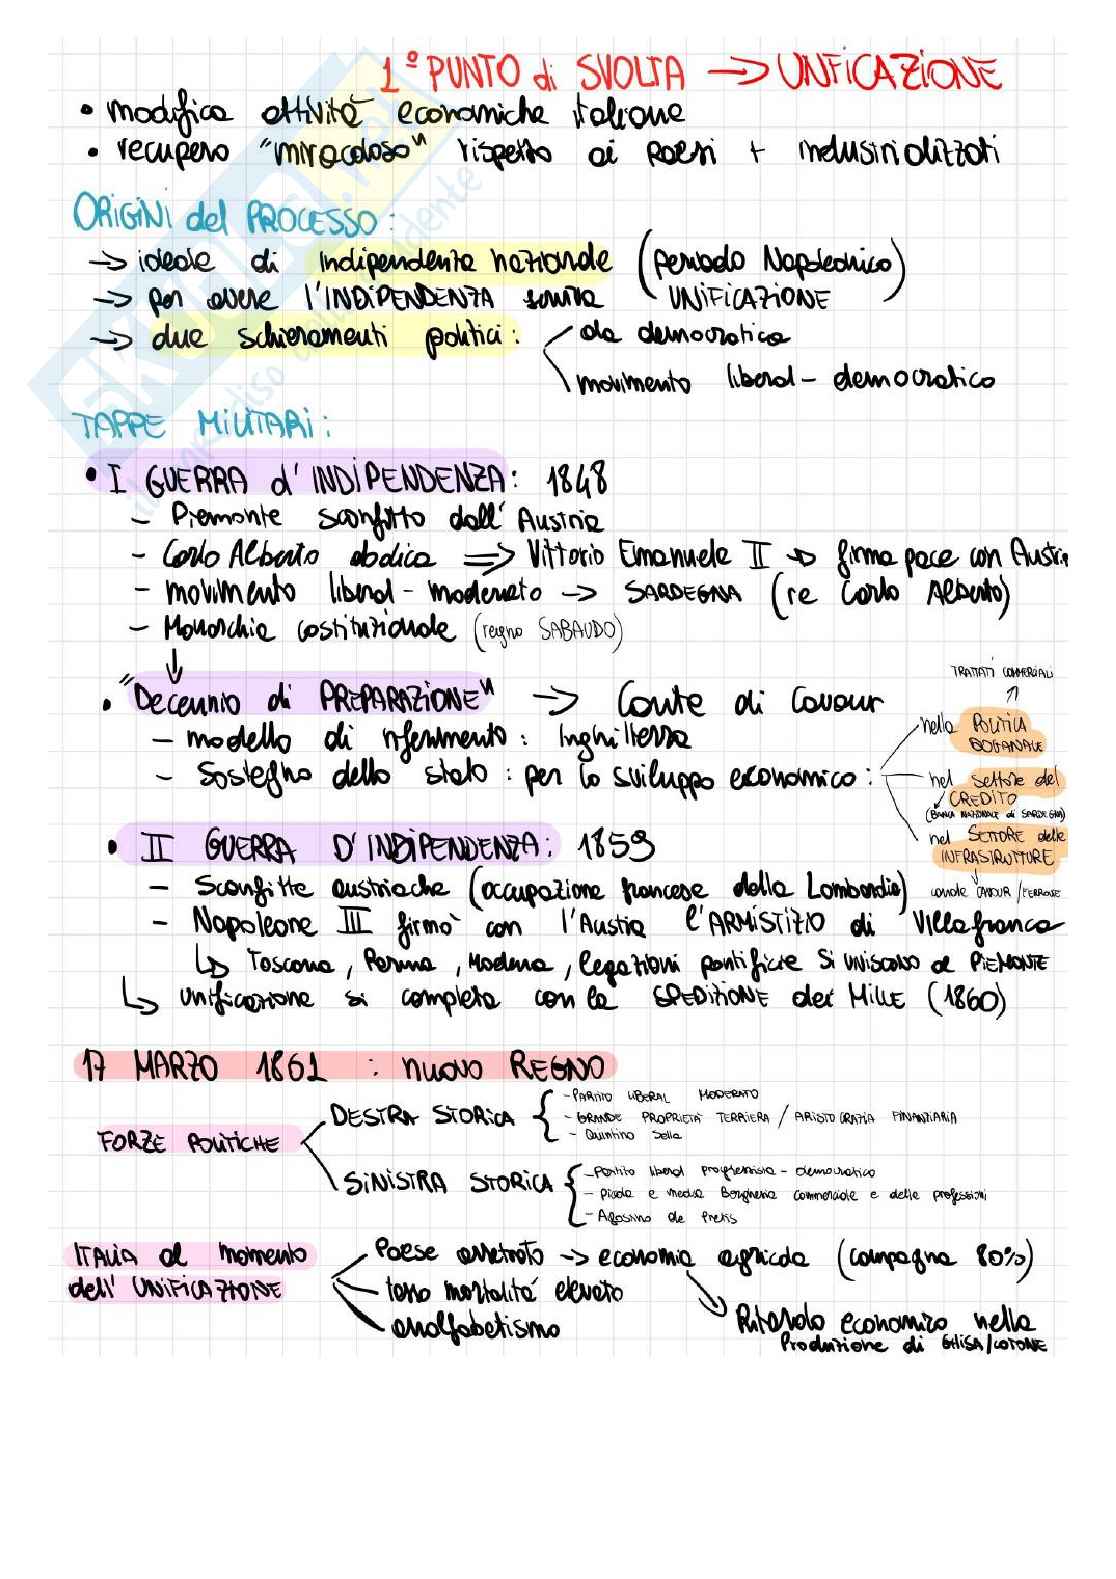 1° PUNTO di SVOLTA → UNFICAZIONE
• modifica attività economiche italiane
• recupero "miracoloso" rispetto ai paesi + industrializzati
ORIGINI del PROCESSO:
→ ideale di indipendenza nazionale (periodo Napoleonico)
→ per avere l'INDIPENDENZA UNIFICAZIONE
→ due schieramenti politici: da democratica
movimento liberal-democratico
TAPPE MILITARI:
• I GUERRA d'INDIPENDENZA: 1848
- Piemonte sconfitto dall'Austria
- Carlo Alberto abdica ⇒ Vittorio Emanuele II → firma pace con Austria
- movimento liberal-moderato → SARDEGNA (re Carlo Alberto)
- Monarchia costituzionale (regno SABAUDO)
↓
• "Decennio di PREPARAZIONE" → Conte di Cavour
- modello di riferimento: Inghilterra
- Sostegno dello stato: per lo sviluppo economico:
TRATTATI COMMERCIALI
⇑
nella POLITICA
DOGANALE
nel settore del
CREDITO
(BANCA NAZIONALE di SARDEGNA)
nel SETTORE delle
INFRASTRUTTURE
↓
canale CAVOUR / FERROVIE
• II GUERRA D'INDIPENDENZA: 1859
- Sconfitte austriache (occupazione francese della Lombardia)
- Napoleone III firmò con l'Austia l'ARMISTIZIO di Villafranca
↳ Toscana, Parma, Modena, legazioni pontificie si UNISCONO al PIEMONTE
↳ unificazione si completa con la SPEDIZIONE dei MILLE (1860)
17 MARZO 1861 : nuovo REGNO
FORZE POLITICHE
DESTRA STORICA
- PARTITO LIBERAL MODERATO
- GRANDE PROPRIETA' TERRIERA / ARISTOCRAZIA FINANZIARIA
- Quintino Sella
SINISTRA STORICA
- Partito liberal progressista-democratico
- Picola e media Borghesia commerciale e delle professioni
- Agostino de Pretis
ITALIA al momento
dell'UNIFICAZIONE
Paese arretrato → economia agricola (campagna 80%)
tasso mortalità elevato
analfabetismo
Ritardo economico nella
Produzione di GHISA/COTONE